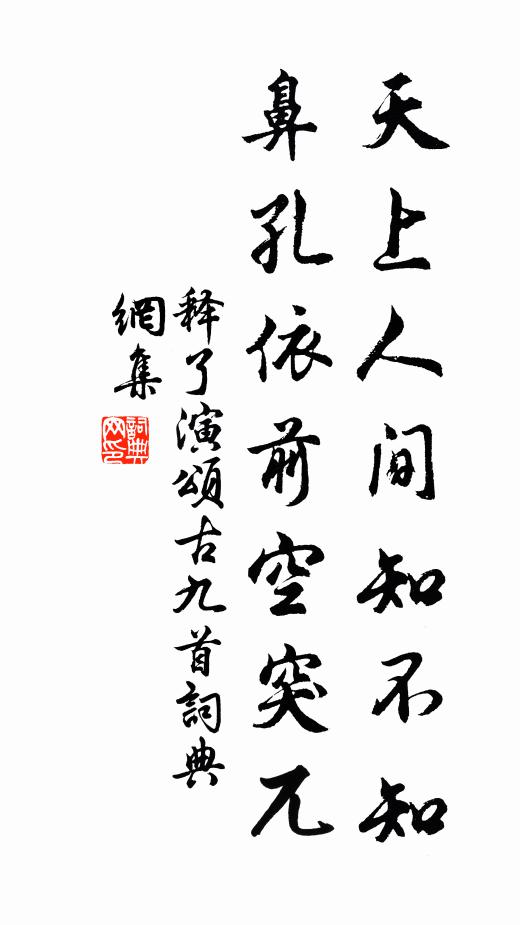 天上人间知不知
鼻孔依前空突兀
释了演頌古九首詞典
網集
詞典
网印